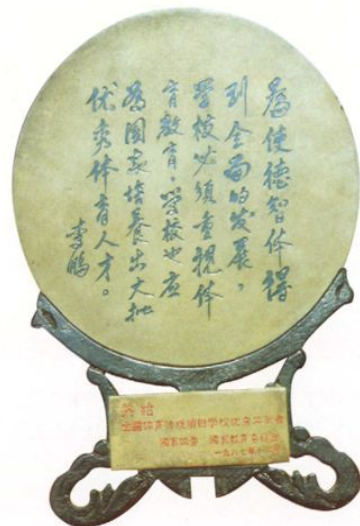 為使德智体得
到全面的发展，
学校必须重視体
育教育，学校也应
為国家培养出大批
优秀体育人才。
李鹏
奖给
全国体育传统项目学校优秀工作者
国家体委 国家教育委员会
一九八七年十